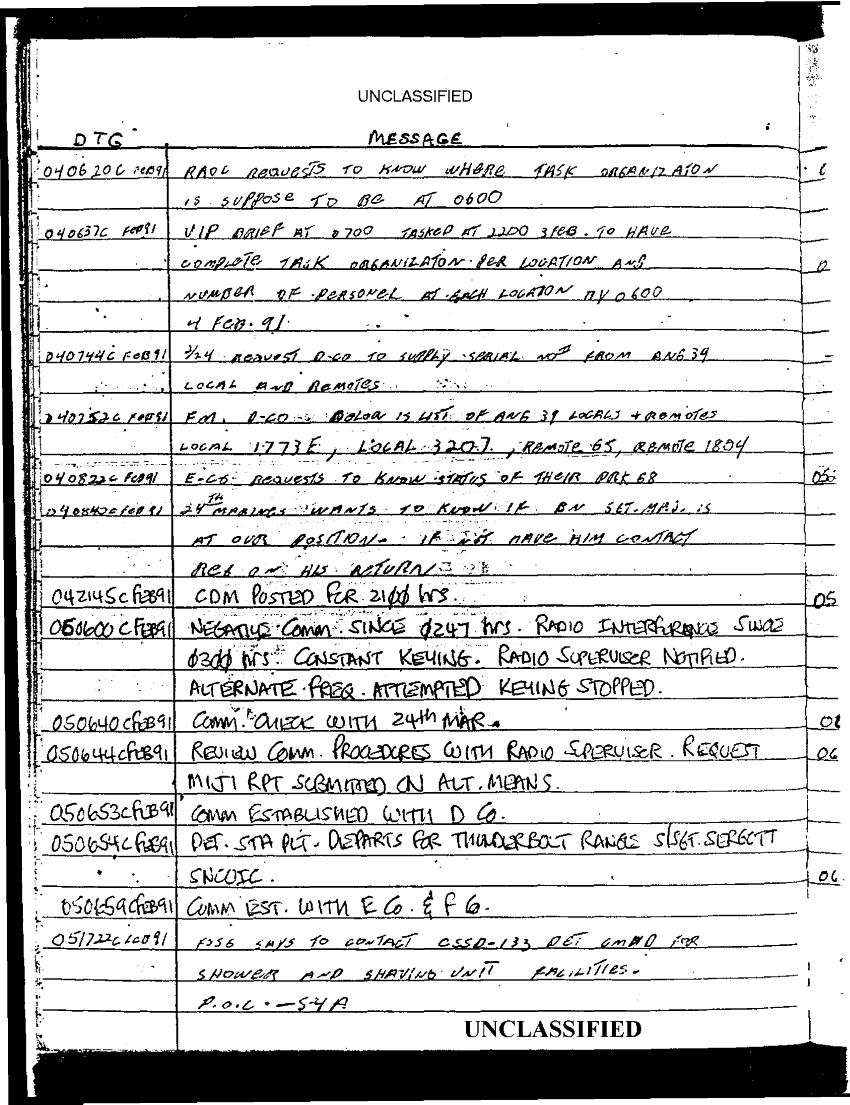 UNCLASSIFIED
DTG MESSAGE
040620C FEB91 RAOC REQUESTS TO KNOW WHERE TASK ORGANIZATON
IS SUPPOSE TO BE AT 0600
040637C FEB91 VIP BRIEF AT 0700 TASKED AT 2200 3 FEB. TO HAVE
COMPLETE TASK ORGANIZATON PER LOCATION AND
NUMBER OF PERSONEL AT EACH LOCATON BY 0600
4 FEB. 91.
040744C FEB91 2/24 REQUEST D-CO TO SUPPLY SERIAL NOS FROM ANG 39
LOCAL AND REMOTES
040752C FEB91 FM. D-CO BELOW IS LIST OF ANG 39 LOCALS + REMOTES
LOCAL 1773E, LOCAL 3207, REMOTE 65, REMOTE 1804
040822C FEB91 E-CO. REQUESTS TO KNOW STATUS OF THEIR PRK 68
040842C FEB91 24TH MARINES WANTS TO KNOW IF BN SGT. MAJ. IS
AT OUR POSITION. IF NOT HAVE HIM CONTACT
REG ON HIS RETURN
042145C FEB91 COM POSTED FOR 2100 hrs.
050600C FEB91 NEGATIVE COMM. SINCE 0247 hrs. RADIO INTERFERENCE SINCE
0300 hrs. CONSTANT KEYING. RADIO SUPERVISER NOTIFIED.
ALTERNATE FREQ. ATTEMPTED KEYING STOPPED.
050640C FEB91 COMM. CHECK WITH 24th MAR.
050644C FEB91 REVIEW COMM. PROCEDURES WITH RADIO SUPERVISER. REQUEST
MIJI RPT SUBMITTED ON ALT. MEANS.
050653C FEB91 COMM ESTABLISHED WITH D CO.
050654C FEB91 DET. STA PLT. DEPARTS FOR THUNDERBOLT RANGE S/SGT.
SNCOIC.
050659C FEB91 COMM EST. WITH E CO. & F CO.
051722C FEB91 FSSG SAYS TO CONTACT CSSD-133 DET CMMD FOR
SHOWER AND SHAVING UNIT FACILITIES.
P.O.C. - S4A
UNCLASSIFIED